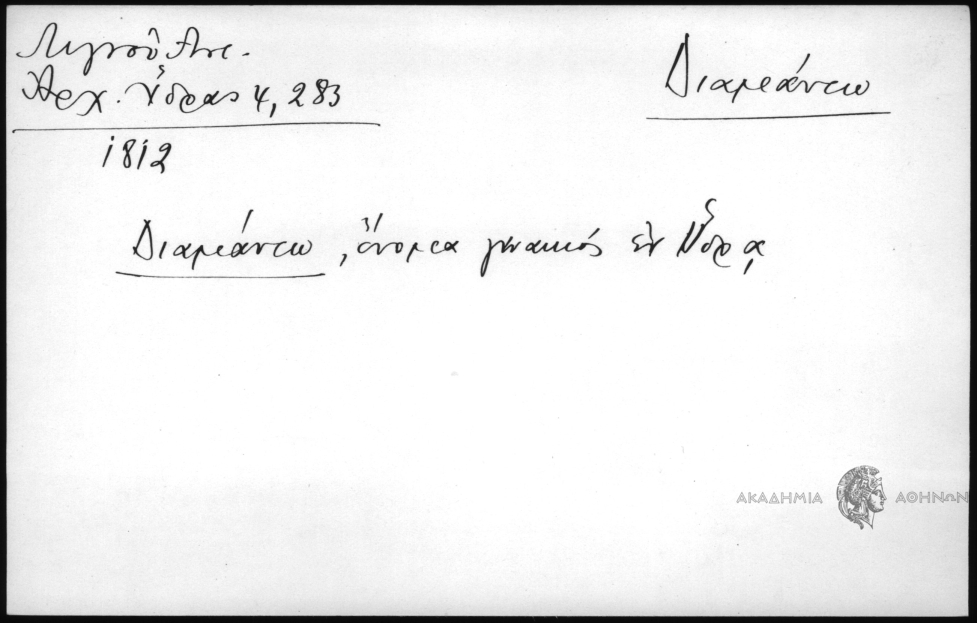 Λιγνοῦ Ἀντ.
Ἀρχ. Ὕδρας 4, 283
Διαμάντω
1812
Διαμάντω, ὄνομα γυναικός ἐν Ὕδρᾳ
ΑΚΑΔΗΜΙΑ ΑΘΗΝΩΝ